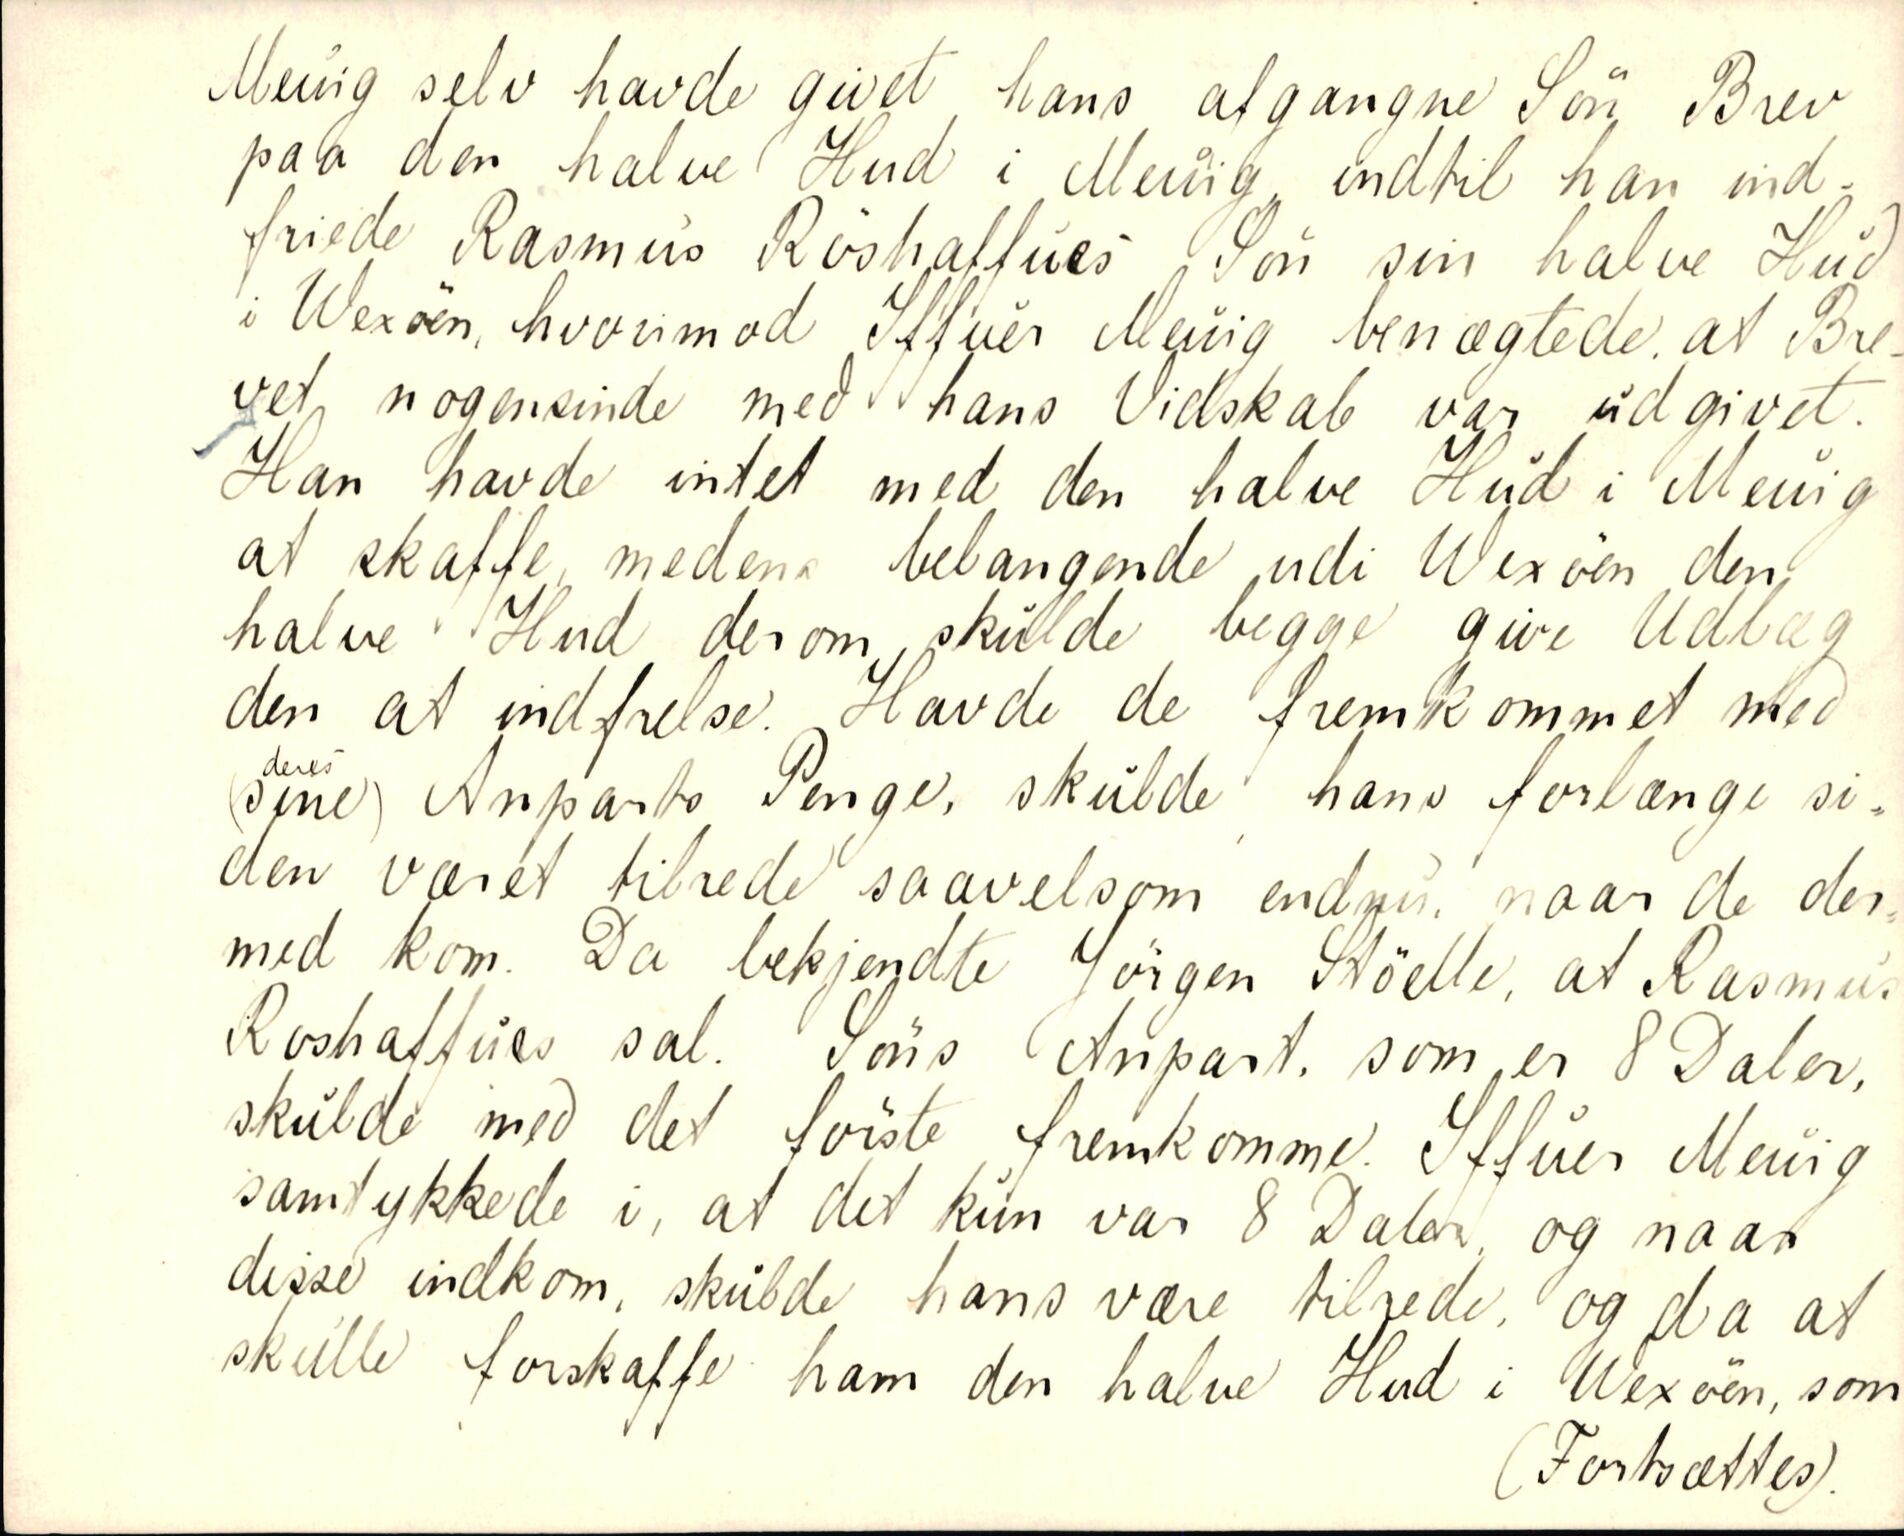 Meuig selv havde givet hans afgangne Sön Brev
paa den halve Hud i Meuig, indtil han ind-
friede Rasmus Röshaffues Sön sin halve Hud
i Wexöen, hvorimod Iffuer Meuig benægtede, at Bre-
vet nogensinde med hans Vidskab var udgivet.
Han havde intet med den halve Hud i Meuig
at skaffe, medens belangende udi Wexöen den
halve Hud derom skulde begge give Udlæg
den at indfrelse. Havde de fremkommet med
deres
(sine) Anparts Penge, skulde hans forlænge si-
den været tilrede saavelsom endnu, naar de der-
med kom. Da bekjendte Jörgen Stöelle, at Rasmus
Roshaffues sal. Söns Anpart, som er 8 Daler,
skulde med det förste fremkomme. Iffuer Meuig
samtykkede i, at det kun var 8 Daler, og naar
disse indkom, skulde hans være tilrede, og da at
skulle forskaffe ham den halve Hud i Wexöen, som
(Fortsættes).